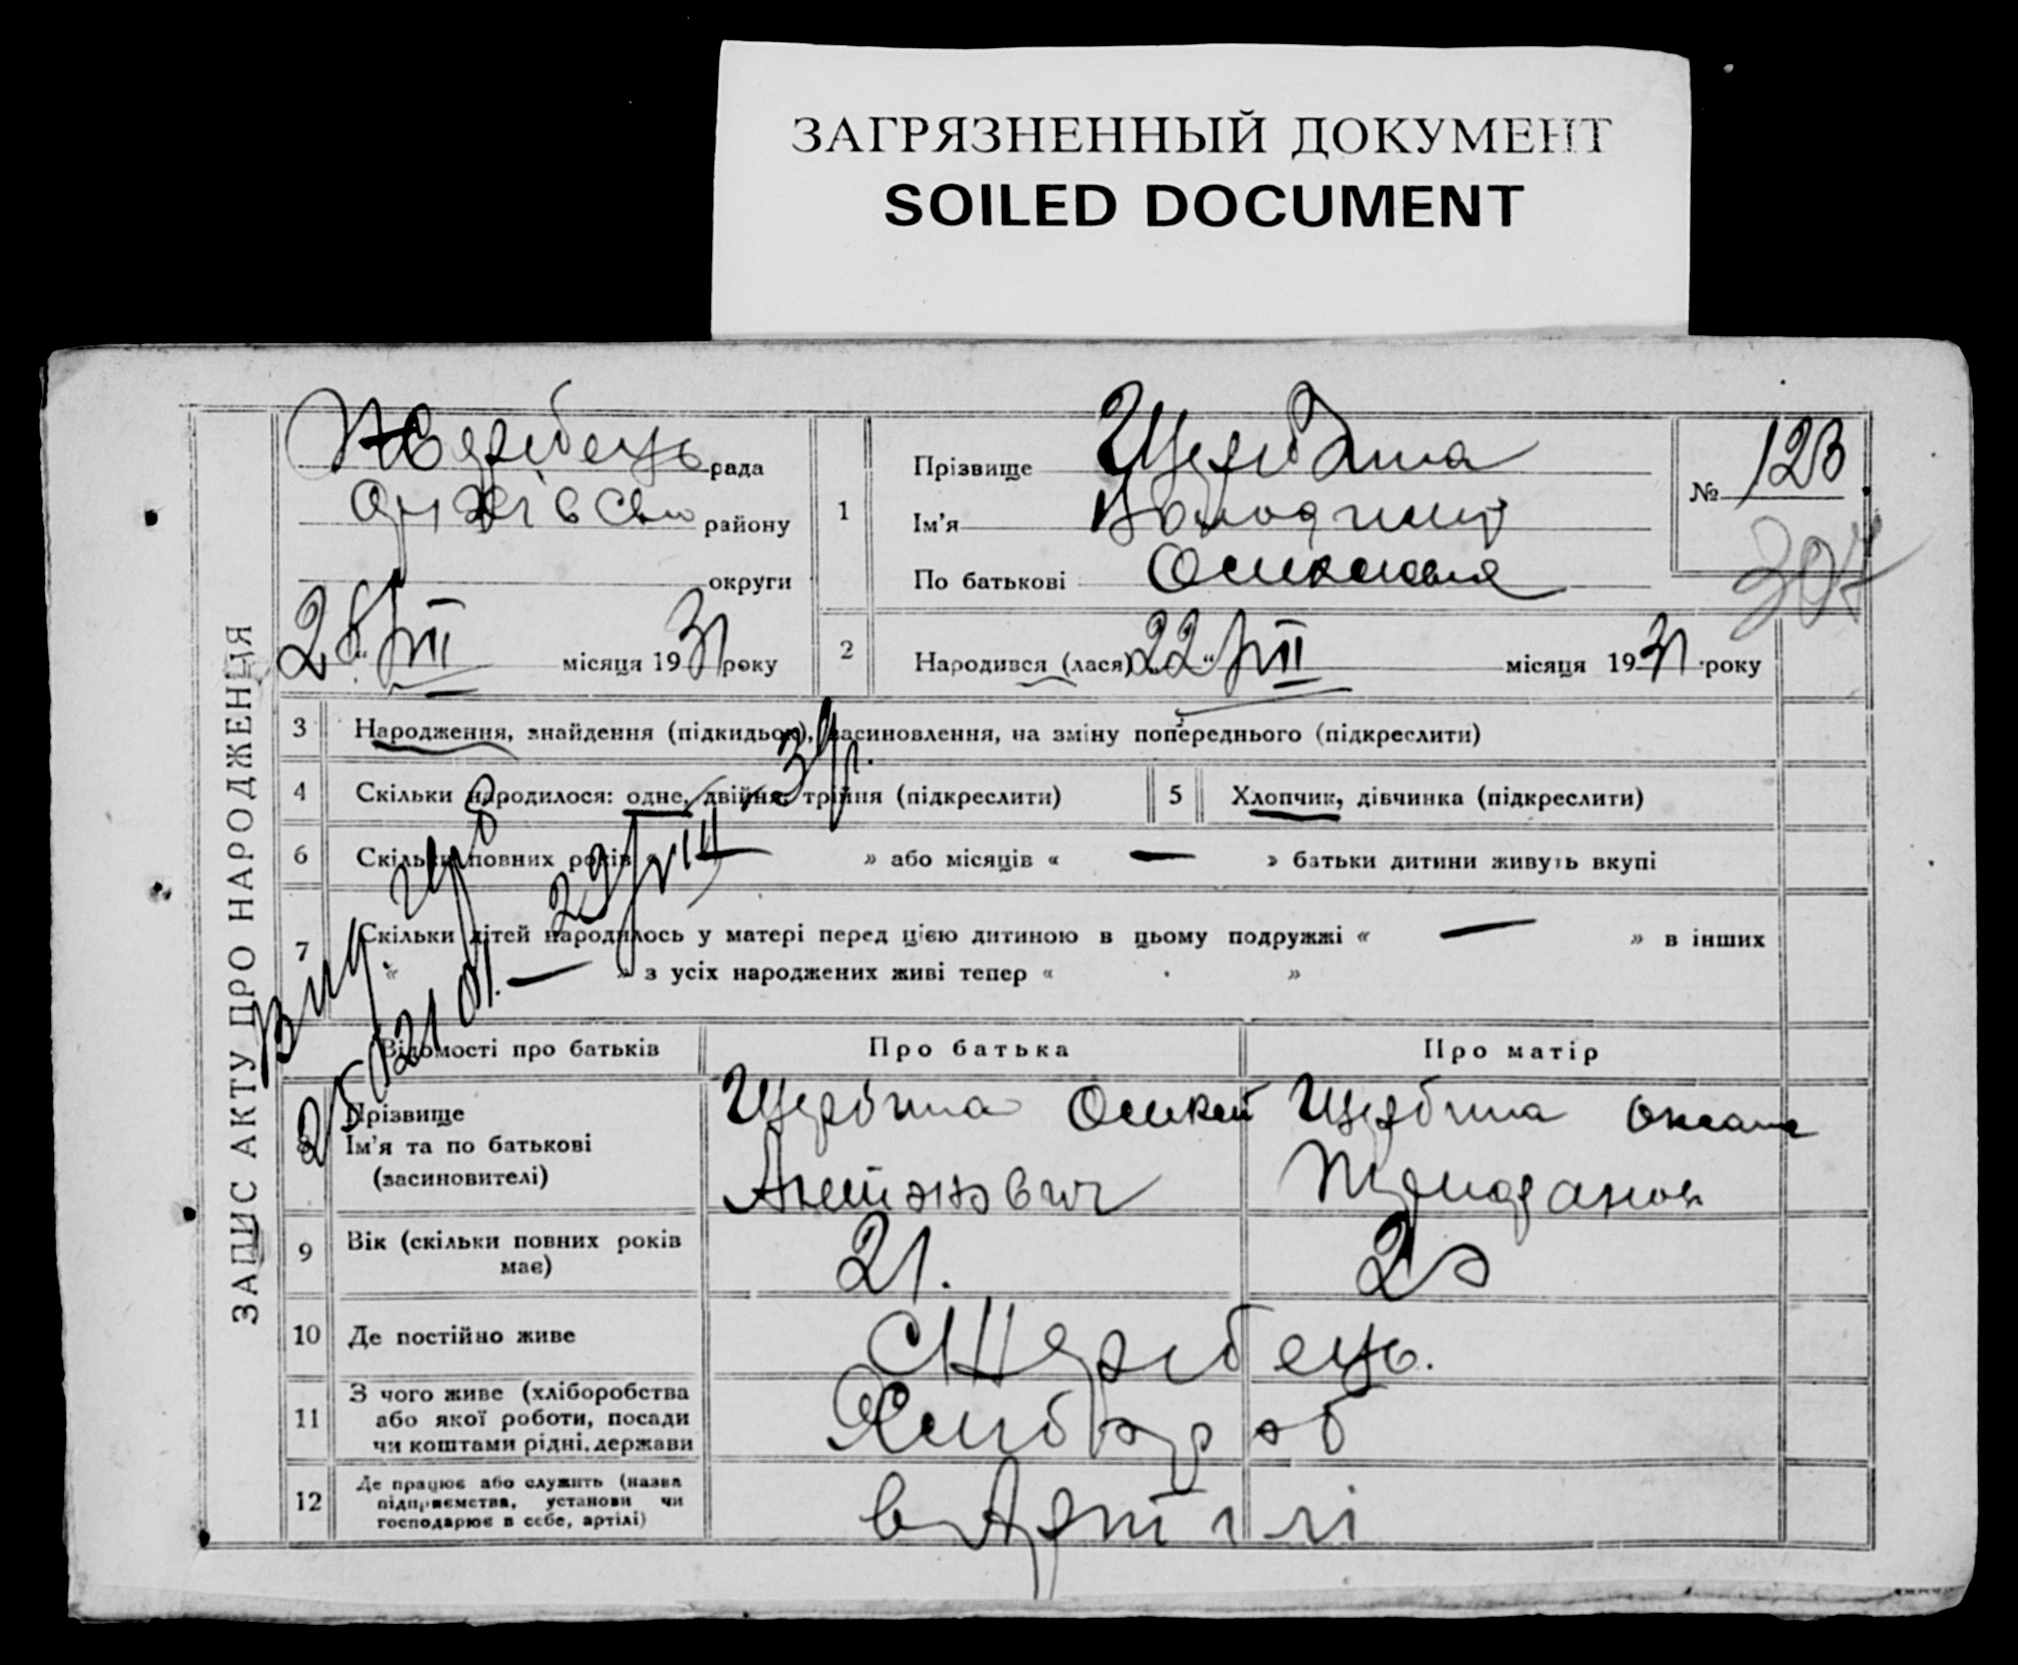 ЗАГРЯЗНЕННЫЙ ДОКУМЕНТ
SOILED DOCUMENT
ЗАПИС АКТУ ПРО НАРОДЖЕННЯ
Жеребець рада
району
округи
28 VII місяця 1931 року
1 Прізвище Щербина
Ім’я Володимир
По батькові
№ 123
307
2 Народився (лася) 22 “ VII місяця 1931 року
3 Народження, знайдення (підкидьок), засиновлення, на зміну попереднього (підкреслити)
4 Скільки народилося: одне, двійня, трійня (підкреслити) 5 Хлопчик, дівчинка (підкреслити)
6 Скільки повних років » або місяців « — » батьки дитини живуть вкупі
7 Скільки дітей народилось у матері перед цією дитиною в цьому подружжі « — » в інших
« — » з усіх народжених живі тепер « »
Відомості про батьків Про батька Про матір
8 Прізвище
Ім’я та по батькові
(засиновителі)
Щербина Щербина
9 Вік (скільки повних років
має)
21. 20
10 Де постійно живе С Жеребець.
11 З чого живе (хліборобства
або якої роботи, посади
чи коштами рідні, держави
Хлібороб
12 Де працює або служить (назва
підприємства, установи чи
господарює в себе, артілі)
в Артілі